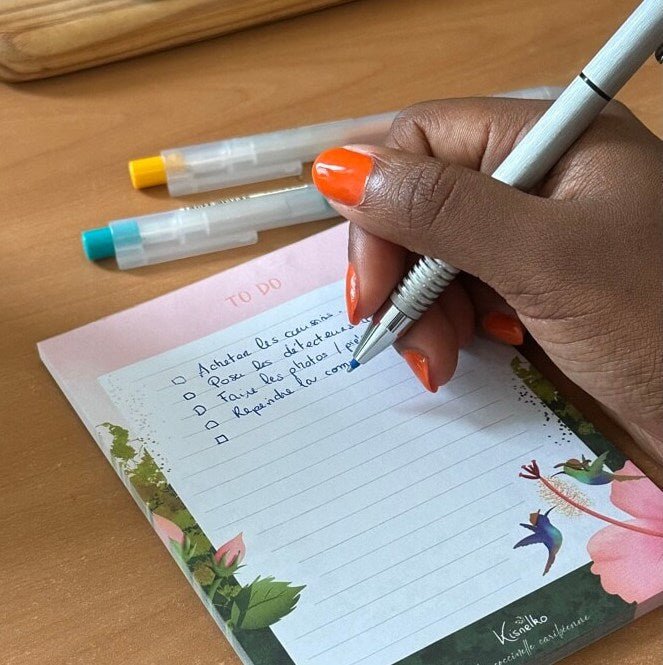 TO DO
Acheter les coussins.
Poser les détecteurs d
Faire les photos / piè
Repeindre la com
Kisnelko
coccinelle caribéenne